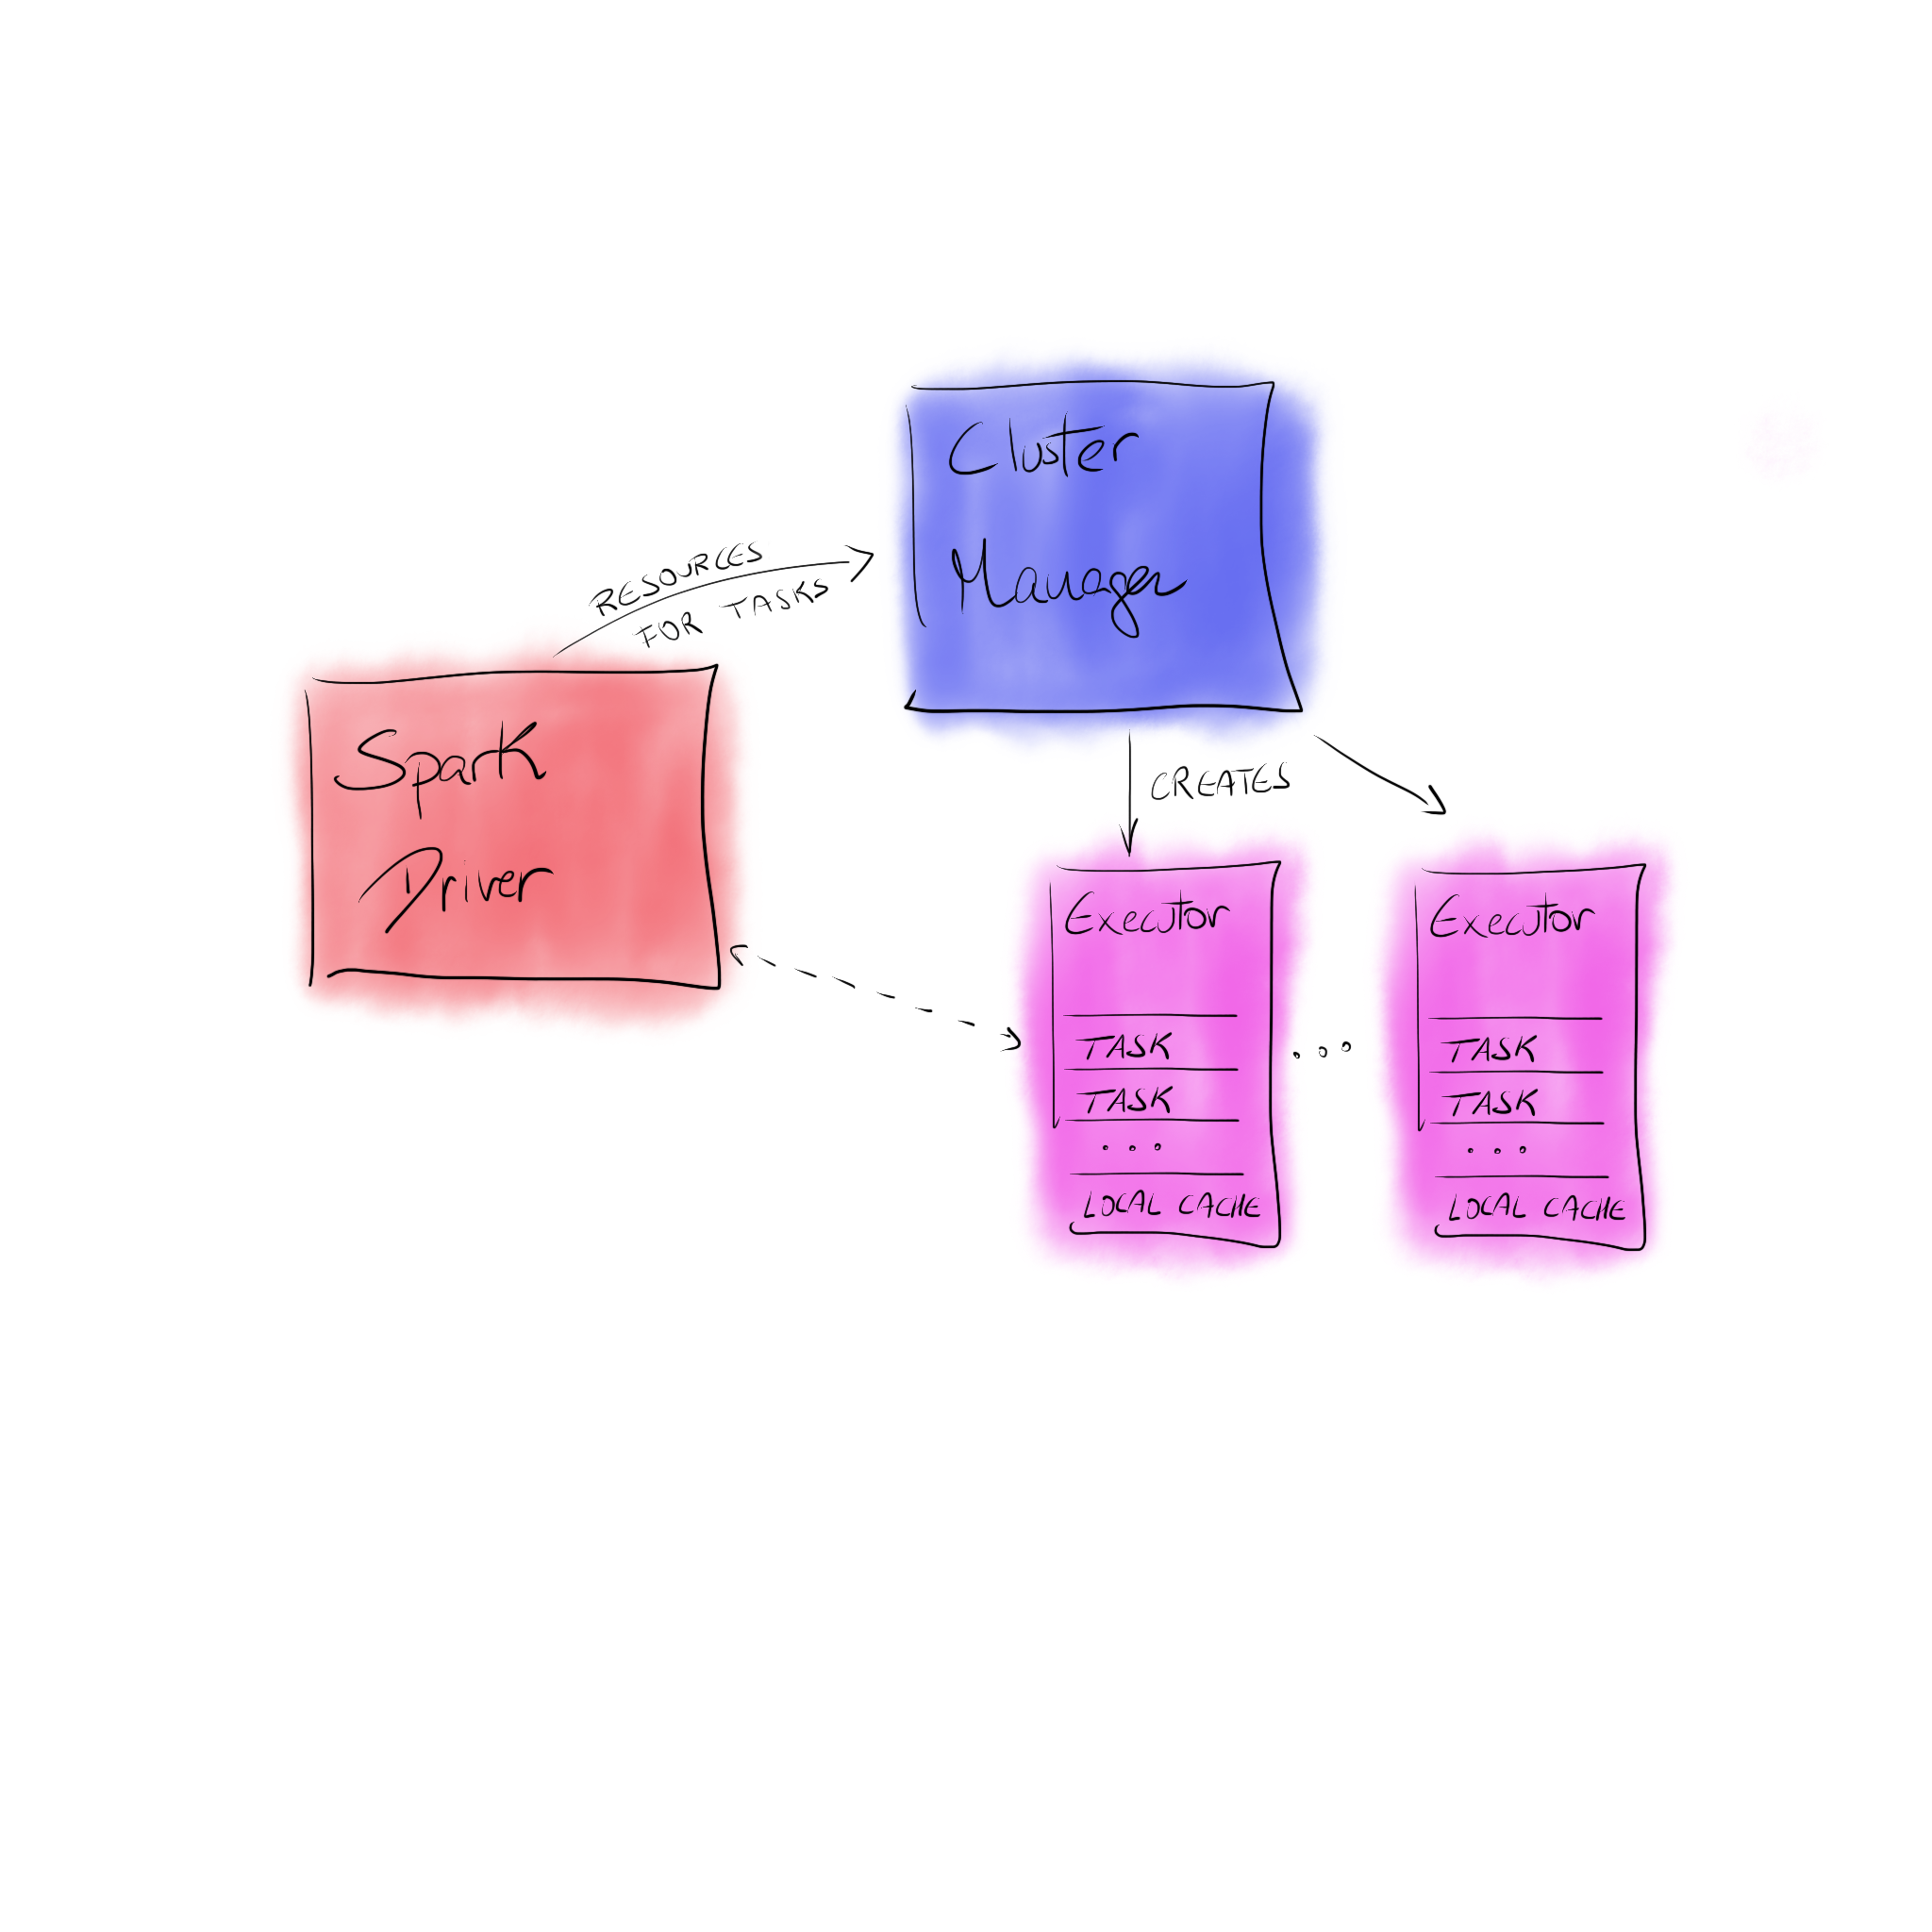 Cluster
Manager
RESOURCES
FOR TASKS
Spark
Driver
CREATES
Executor
TASK
TASK
...
LOCAL CACHE
...
Executor
TASK
TASK
...
LOCAL CACHE